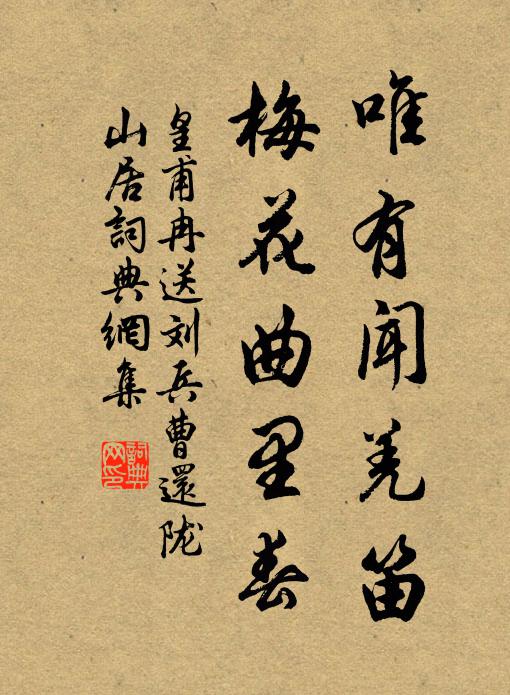 唯有闻羌笛
梅花曲里春
皇甫冉送刘兵曹還陇
山居詞典網集
詞典
网印